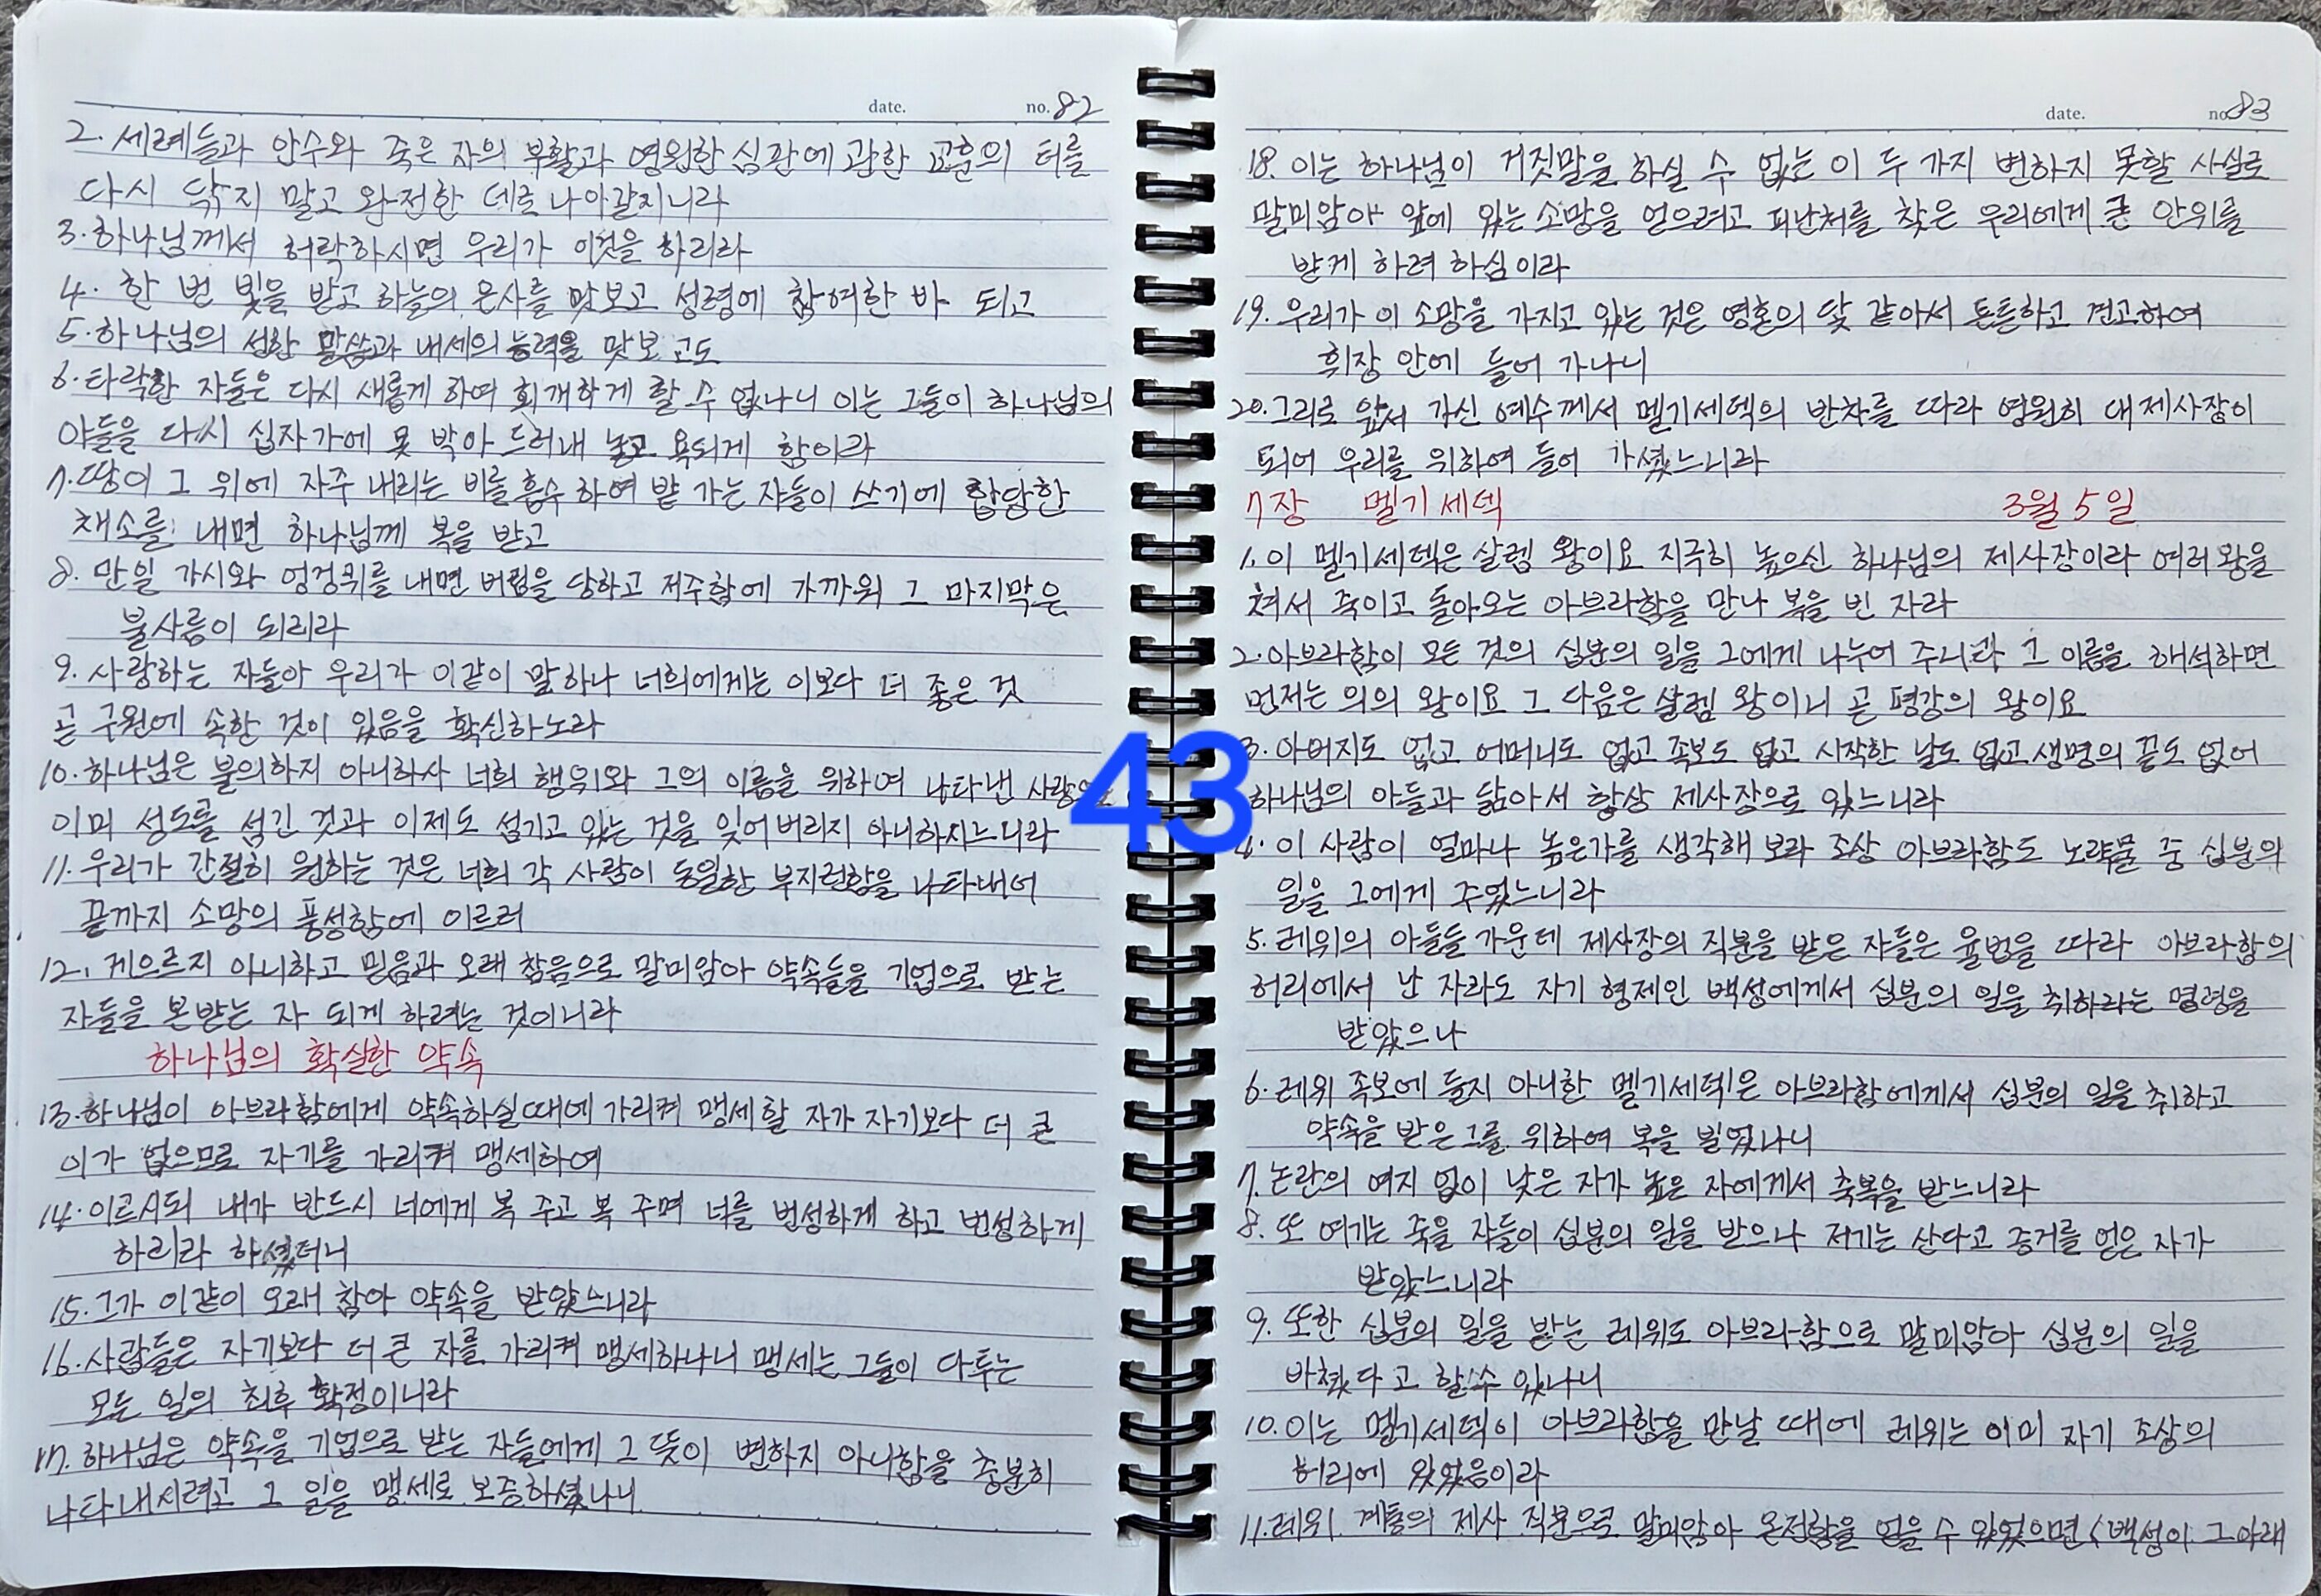 date. no. 82
2. 세례들과 안수와 죽은 자의 부활과 영원한 심판에 관한 교훈의 터를
다시 닦지 말고 완전한 데로 나아갈지니라
3. 하나님께서 허락하시면 우리가 이것을 하리라
4. 한 번 빛을 받고 하늘의 은사를 맛보고 성령에 참여한 바 되고
5. 하나님의 선한 말씀과 내세의 능력을 맛보고도
6. 타락한 자들은 다시 새롭게 하여 회개하게 할 수 없나니 이는 그들이 하나님의
아들을 다시 십자가에 못 박아 드러내 놓고 욕되게 함이라
7. 땅이 그 위에 자주 내리는 비를 흡수하여 밭 가는 자들이 쓰기에 합당한
채소를 내면 하나님께 복을 받고
8. 만일 가시와 엉겅퀴를 내면 버림을 당하고 저주함에 가까워 그 마지막은
불사름이 되리라
9. 사랑하는 자들아 우리가 이같이 말하나 너희에게는 이보다 더 좋은 것
곧 구원에 속한 것이 있음을 확신하노라
10. 하나님은 불의하지 아니하사 너희 행위와 그의 이름을 위하여 나타낸 사랑으로
이미 성도를 섬긴 것과 이제도 섬기고 있는 것을 잊어버리지 아니하지느니라
11. 우리가 간절히 원하는 것은 너희 각 사람이 동일한 부지런함을 나타내어
끝까지 소망의 풍성함에 이르러
12. 게으르지 아니하고 믿음과 오래 참음으로 말미암아 약속들을 기업으로 받는
자들을 본받는 자 되게 하려는 것이니라
하나님의 확실한 약속
13. 하나님이 아브라함에게 약속하실 때에 가리켜 맹세할 자가 자기보다 더 큰
이가 없으므로 자기를 가리켜 맹세하여
14. 이르시되 내가 반드시 너에게 복 주고 복 주며 너를 번성하게 하고 번성하게
하리라 하셨더니
15. 그가 이같이 오래 참아 약속을 받았느니라
16. 사람들은 자기보다 더 큰 자를 가리켜 맹세하나니 맹세는 그들이 다투는
모든 일의 최후 확정이니라
17. 하나님은 약속을 기업으로 받는 자들에게 그 뜻이 변하지 아니함을 충분히
나타내시려고 그 일을 맹세로 보증하셨나니
43
date. no 83
18. 이는 하나님이 거짓말을 하실 수 없는 이 두 가지 변하지 못할 사실로
말미암아 앞에 있는 소망을 얻으려고 피난처를 찾은 우리에게 큰 안위를
받게 하려 하심이라
19. 우리가 이 소망을 가지고 있는 것은 영혼의 닻 같아서 튼튼하고 견고하여
휘장 안에 들어 가나니
20. 그리로 앞서 가신 예수께서 멜기세덱의 반차를 따라 영원히 대제사장이
되어 우리를 위하여 들어 가셨느니라
7장 멜기세덱 3월 5일
1. 이 멜기세덱은 살렘 왕이요 지극히 높으신 하나님의 제사장이라 여러 왕을
쳐서 죽이고 돌아오는 아브라함을 만나 복을 빈 자라
2. 아브라함이 모든 것의 십분의 일을 그에게 나누어 주니라 그 이름을 해석하면
먼저는 의의 왕이요 그 다음은 살렘 왕이니 곧 평강의 왕이요
3. 아버지도 없고 어머니도 없고 족보도 없고 시작한 날도 없고 생명의 끝도 없어
하나님의 아들과 닮아서 항상 제사장으로 있느니라
4. 이 사람이 얼마나 높은가를 생각해 보라 조상 아브라함도 노략물 중 십분의
일을 그에게 주었느니라
5. 레위의 아들들 가운데 제사장의 직분을 받은 자들은 율법을 따라 아브라함의
허리에서 난 자라도 자기 형제인 백성에게서 십분의 일을 취하라는 명령을
받았으나
6. 레위 족보에 들지 아니한 멜기세덱은 아브라함에게서 십분의 일을 취하고
약속을 받은 그를 위하여 복을 빌었나니
7. 논란의 여지 없이 낮은 자가 높은 자에게서 축복을 받느니라
8. 또 여기는 죽을 자들이 십분의 일을 받으나 저기는 산다고 증거를 얻은 자가
받았느니라
9. 또한 십분의 일을 받는 레위도 아브라함으로 말미암아 십분의 일을
바쳤다고 할 수 있나니
10. 이는 멜기세덱이 아브라함을 만날 때에 레위는 이미 자기 조상의
허리에 있었음이라
11. 레위 계통의 제사 직분으로 말미암아 온전함을 얻을 수 있었으면 (백성이 그 아래